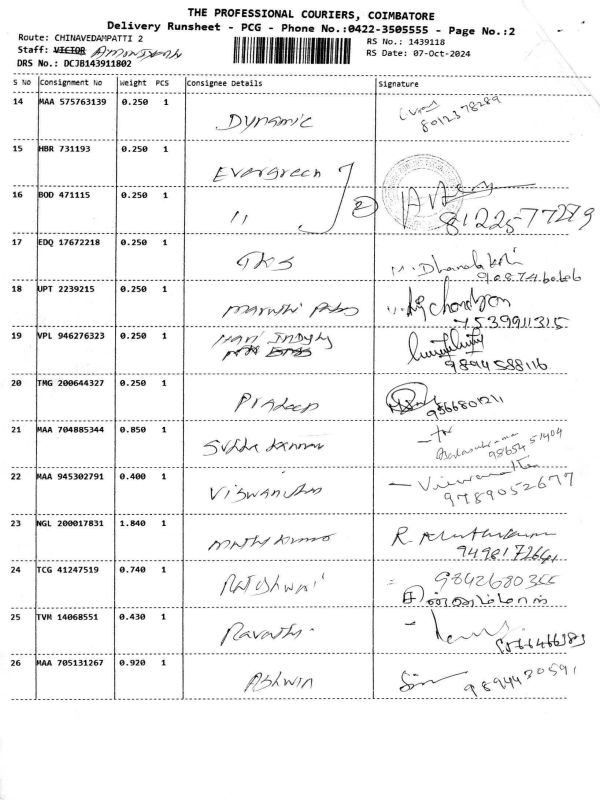 THE PROFESSIONAL COURIERS, COIMBATORE
Delivery Runsheet - PCG - Phone No.:0422-3505555 - Page No.:2
Route: CHINAVEDAMPATTI 2
RS No.: 1439118
Staff: VICTOR
RS Date: 07-Oct-2024
DRS No.: DCJB143911802
S No Consignment No Weight PCS Consignee Details Signature
14 MAA 575763139 0.250 1 Dynamic
8012378289
15 HBR 731193 0.250 1 Evergreen
16 BOD 471115 0.250 1 ,, 2
8122577279
17 EDQ 17672218 0.250 1 GKS
18 UPT 2239215 0.250 1
7539911315
19 VPL 946276323 0.250 1 Hari
9894588116
20 TMG 200644327 0.250 1 Pradeep
9566801211
21 MAA 704885344 0.850 1
22 MAA 945302791 0.400 1
9789052677
23 NGL 200017831 1.840 1
24 TCG 41247519 0.740 1 9842680355
25 TVM 14068551 0.430 1
26 MAA 705131267 0.920 1 Ashwin 9894430591